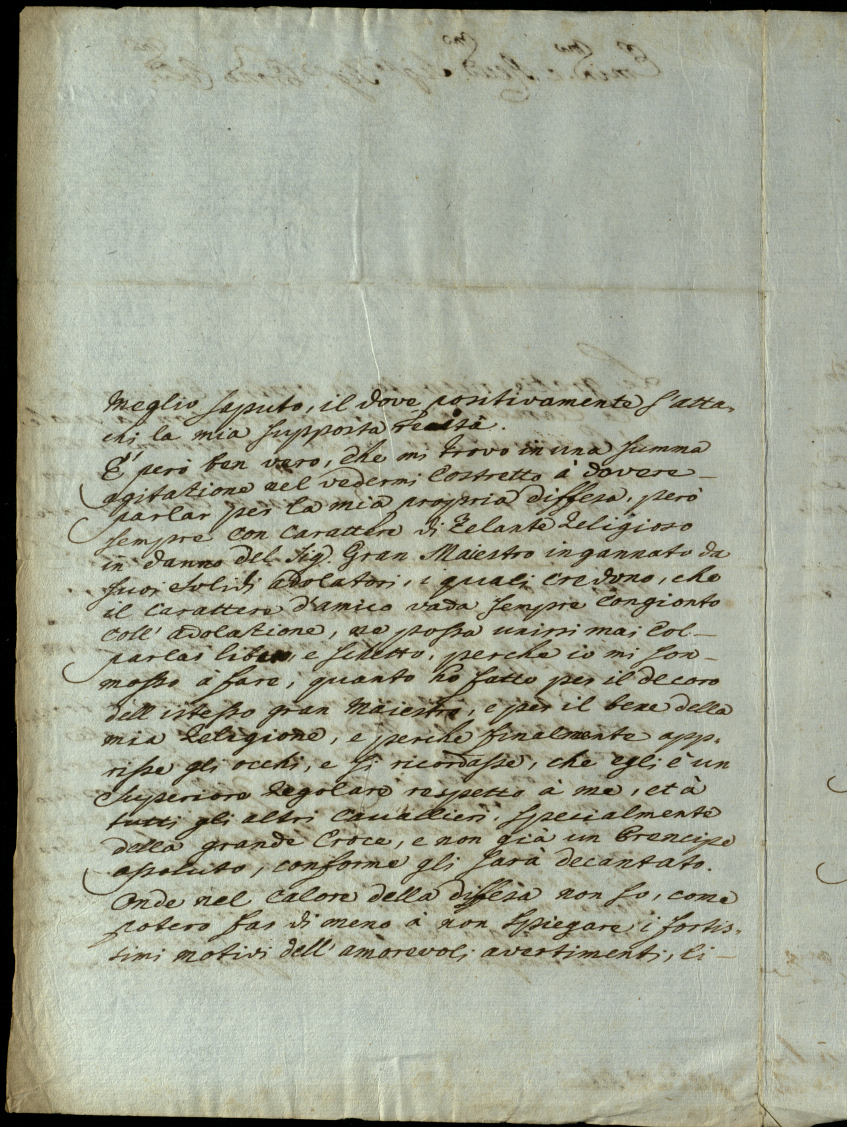 meglio saputo, il dove positivamente s'atta-
chi la mia supposta reità.
E' però ben vero, che mi trovo in una summa
agitazione nel vedermi costretto à dovere
parlar per la mia propria diffesa, però
sempre con carattere di zelante Religioso
in danno del Sig.r Gran Maestro ingannato da
suoi solidi adolatori, i quali credono, che
il carattere d'amico vada sempre congionto
coll' adolazione, ne possa unirsi mai col
parlar libero, e schetto, perche io mi son
mosso à fare, quanto hò fatto per il decoro
dell' istesso gran Maiestro, e per il bene della
mia Religione, e perche finalmente app-
risse gli occhi, e si ricordasse, che egli è un
Superiore Regolare respetto à me, et à
tutti gli altri Cavallieri, specialmente
della grande Croce, e non già un Prencipe
assoluto, conforme gli sarà decantato.
Onde nel calore della diffesa non so, come
potero far di meno à non spiegare i fortis-
simi motivi dell' amorevoli avertimenti, li-